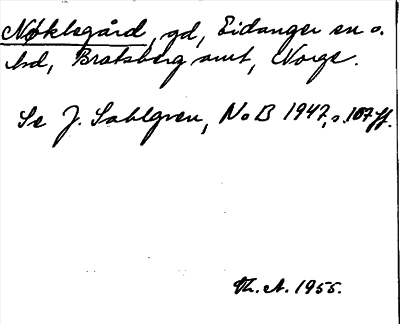 Nøklegård, gd, Eidanger sn o.
hd, Bratsberg amt, Norge.
Se J. Sahlgren, NoB 1947, s. 107 ff.
Th. A. 1955.